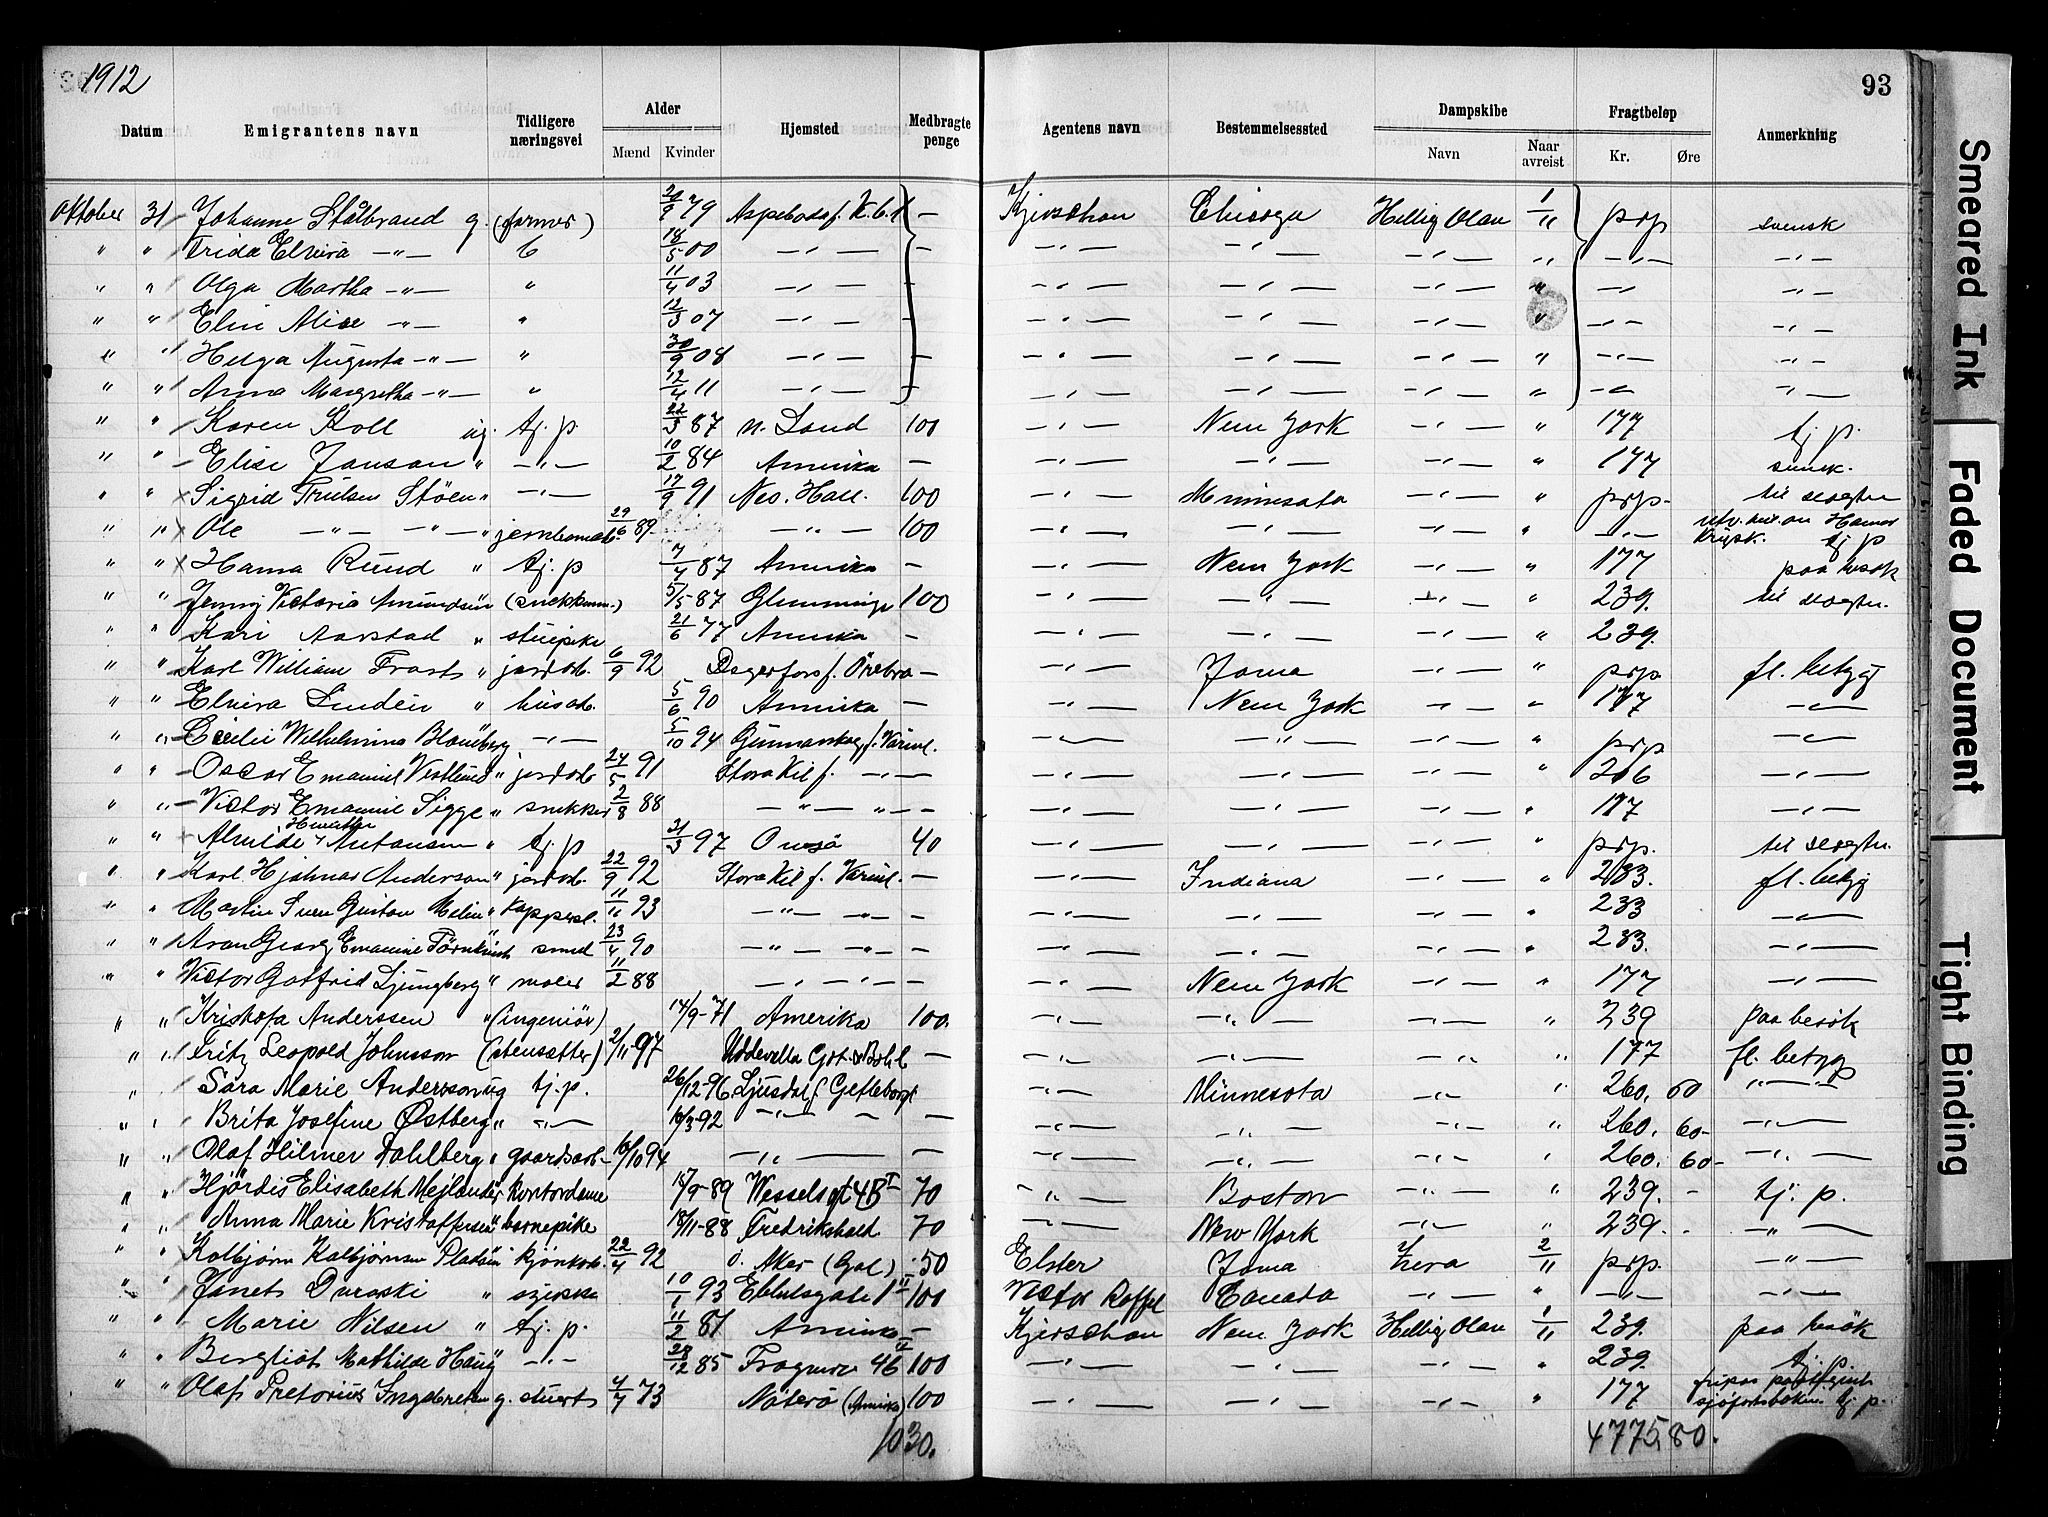 1912
93
Datum Emigrantens navn Tidligere næringsvei Alder Mænd Kvinder Hjemsted Medbragte penge Agentens navn Bestemmelsessted Dampskibe Navn Naar avreist Fragtbeløp Kr. Øre Anmerkning
Oktober 31 Johanne Stålbrand g. (farmer) 21/9 79 – Chicago Hellig Olav 1/11 prp svensk
" " Frida Elvira –"– 6 18/5 00 –"– – –"– –"– –"– " –"– –"–
" " Olga Martha –"– " 11/4 03 –"– – –"– –"– –"– " –"– –"–
" " Elin Alice –"– " 12/3 07 –"– – –"– –"– –"– " –"– –"–
" " Helga Augusta –"– " 30/9 08 –"– – –"– –"– –"– " –"– –"–
" " Anna Margretha –"– " 12/4 11 –"– – –"– –"– –"– " –"– –"–
" " Karen Koll ug. tj. p 22/3 87 n. Land 100 –"– New York –"– " 177 tj. p.
" " Elise Janson " –"– 10/2 84 Amerika – –"– –"– –"– " 177 svensk.
" " Sigrid Trulsen Støen " –"– 17/9 91 Nes. Hall. 100 –"– Minnesota –"– " prp. til slegtn
" " Ole –"– –"– " 29/6 89 –"– 100 –"– –"– –"– " –"–
" " Hanna Ruud " tj. p 7/4 87 Amerika – –"– New York –"– " 177 paa besøk
" " Jenny Victoria Amundsen (snekkerm.) 5/5 87 Glemminge 100 –"– –"– –"– " 239. til slegtn.
" " Kari Aarstad " stuepike 21/6 77 Amerika – –"– –"– –"– " 239.
" " Karl William Frost " jordarb. 6/9 92 Degerfors f. Örebro – –"– Jowa –"– " prp fl. betyg
" " Elvira Lindén " husarb. 5/6 90 Amerika – –"– New York –"– " 177 –"–
" " Cecilie Wilhelmina Blomberg –"– 5/10 94 Gunnarskog f. Värml. –"– –"– –"– " prp –"–
" " Oscar Emanuel Vestlund " jordarb 24/5 91 Stora Kil f. –"– –"– –"– –"– " 216 –"–
" " Victor Emanuel Sigge " snekker 2/8 88 –"– " – –"– –"– –"– " 177 –"–
" " Alvilde Antonsen " tj. p 31/3 97 Onsö 40 –"– –"– –"– " prp. til slegtn.
" " Karl Hjalmar Anderson " jordarb. 22/9 92 Stora Kil f. Värml. – –"– Indiana –"– " 233. fl. betyg
" " Martin Sven Gustav Melin " 11/11 93 –"– –"– – –"– –"– –"– " 233 –"–
" " Aron Georg Emanuel Törnkvist smed 23/4 90 –"– –"– – –"– –"– –"– " 233. –"–
" " Victor Gotfrid Ljungberg " maler 11/2 88 –"– –"– – –"– New York –"– " 177 –"–
" " Kristofa Anderssen " (ingeniör) 14/9-71 Amerika 100. –"– –"– –"– " 239 paa besök
" " Fritz Leopold Johnsson (stensetter) 2/11-97 Uddevalla Göt. & Bohl – –"– –"– –"– " 177 fl. betyg
" " Sara Marie Andersson ug tj. p. 26/12-96 Ljusdal f Gefleborgs –"– Minnesota –"– " 260. 60 –"–
" " Brita Josefine Østberg " –"– 16/3-92 –"– – – –"– –"– –"– " 260. 60- –"–
" " Olaf Hilmer Dahlberg " gaardsarb- 19/10 94 –"– –"– –"– –"– " 260. 60- –"–
" " Hjördis Elisabeth Mejlander kontordame 15/9-89 Wesselsgt 4B I 70 –"– Boston –"– " 239. - tj. p.
" " Anna Marie Kristoffersen " barnepike 18/11-88 Fredrikshald 70 –"– New York –"– " 239. - –"–
" " Kolbjørn Kolbjørnsen Pladsen " 22/4 92 ö. Aker (Gol) 50 Elster Jowa 2/11 prp. –"–
" " " 10/1 93 100 Canada –"– " –"–
" " Marie Nilsen " tj. p. 11/2 87 Amerika – New York Hellig Olav 1/11 239. paa besök
" " Bergliot Mathilde Haug " –"– 28/12 85 Frognerv 46 IV 100 –"– –"– –"– " 239. tj. p.
" " Olaf Pretorius Ingebretsen g. stuert 4/7 73 Nöterö (Amerika) 100 –"– –"– –"– " 177 tj. p.
1030.
4775,80.
Smeared Ink
Faded Document
Tight Binding